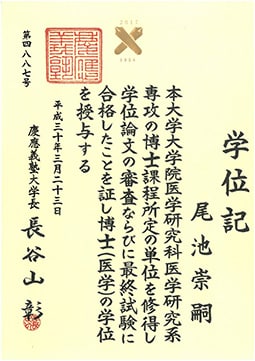 学位記
尾池崇嗣
本大学大学院医学研究科医学研究系
専攻の博士課程所定の単位を修得し
学位論文の審査ならびに最終試験に
合格したことを証し博士(医学)の学位
を授与する
平成三十年三月二十三日
慶應義塾大学長 長谷山 彰
第四八八七号